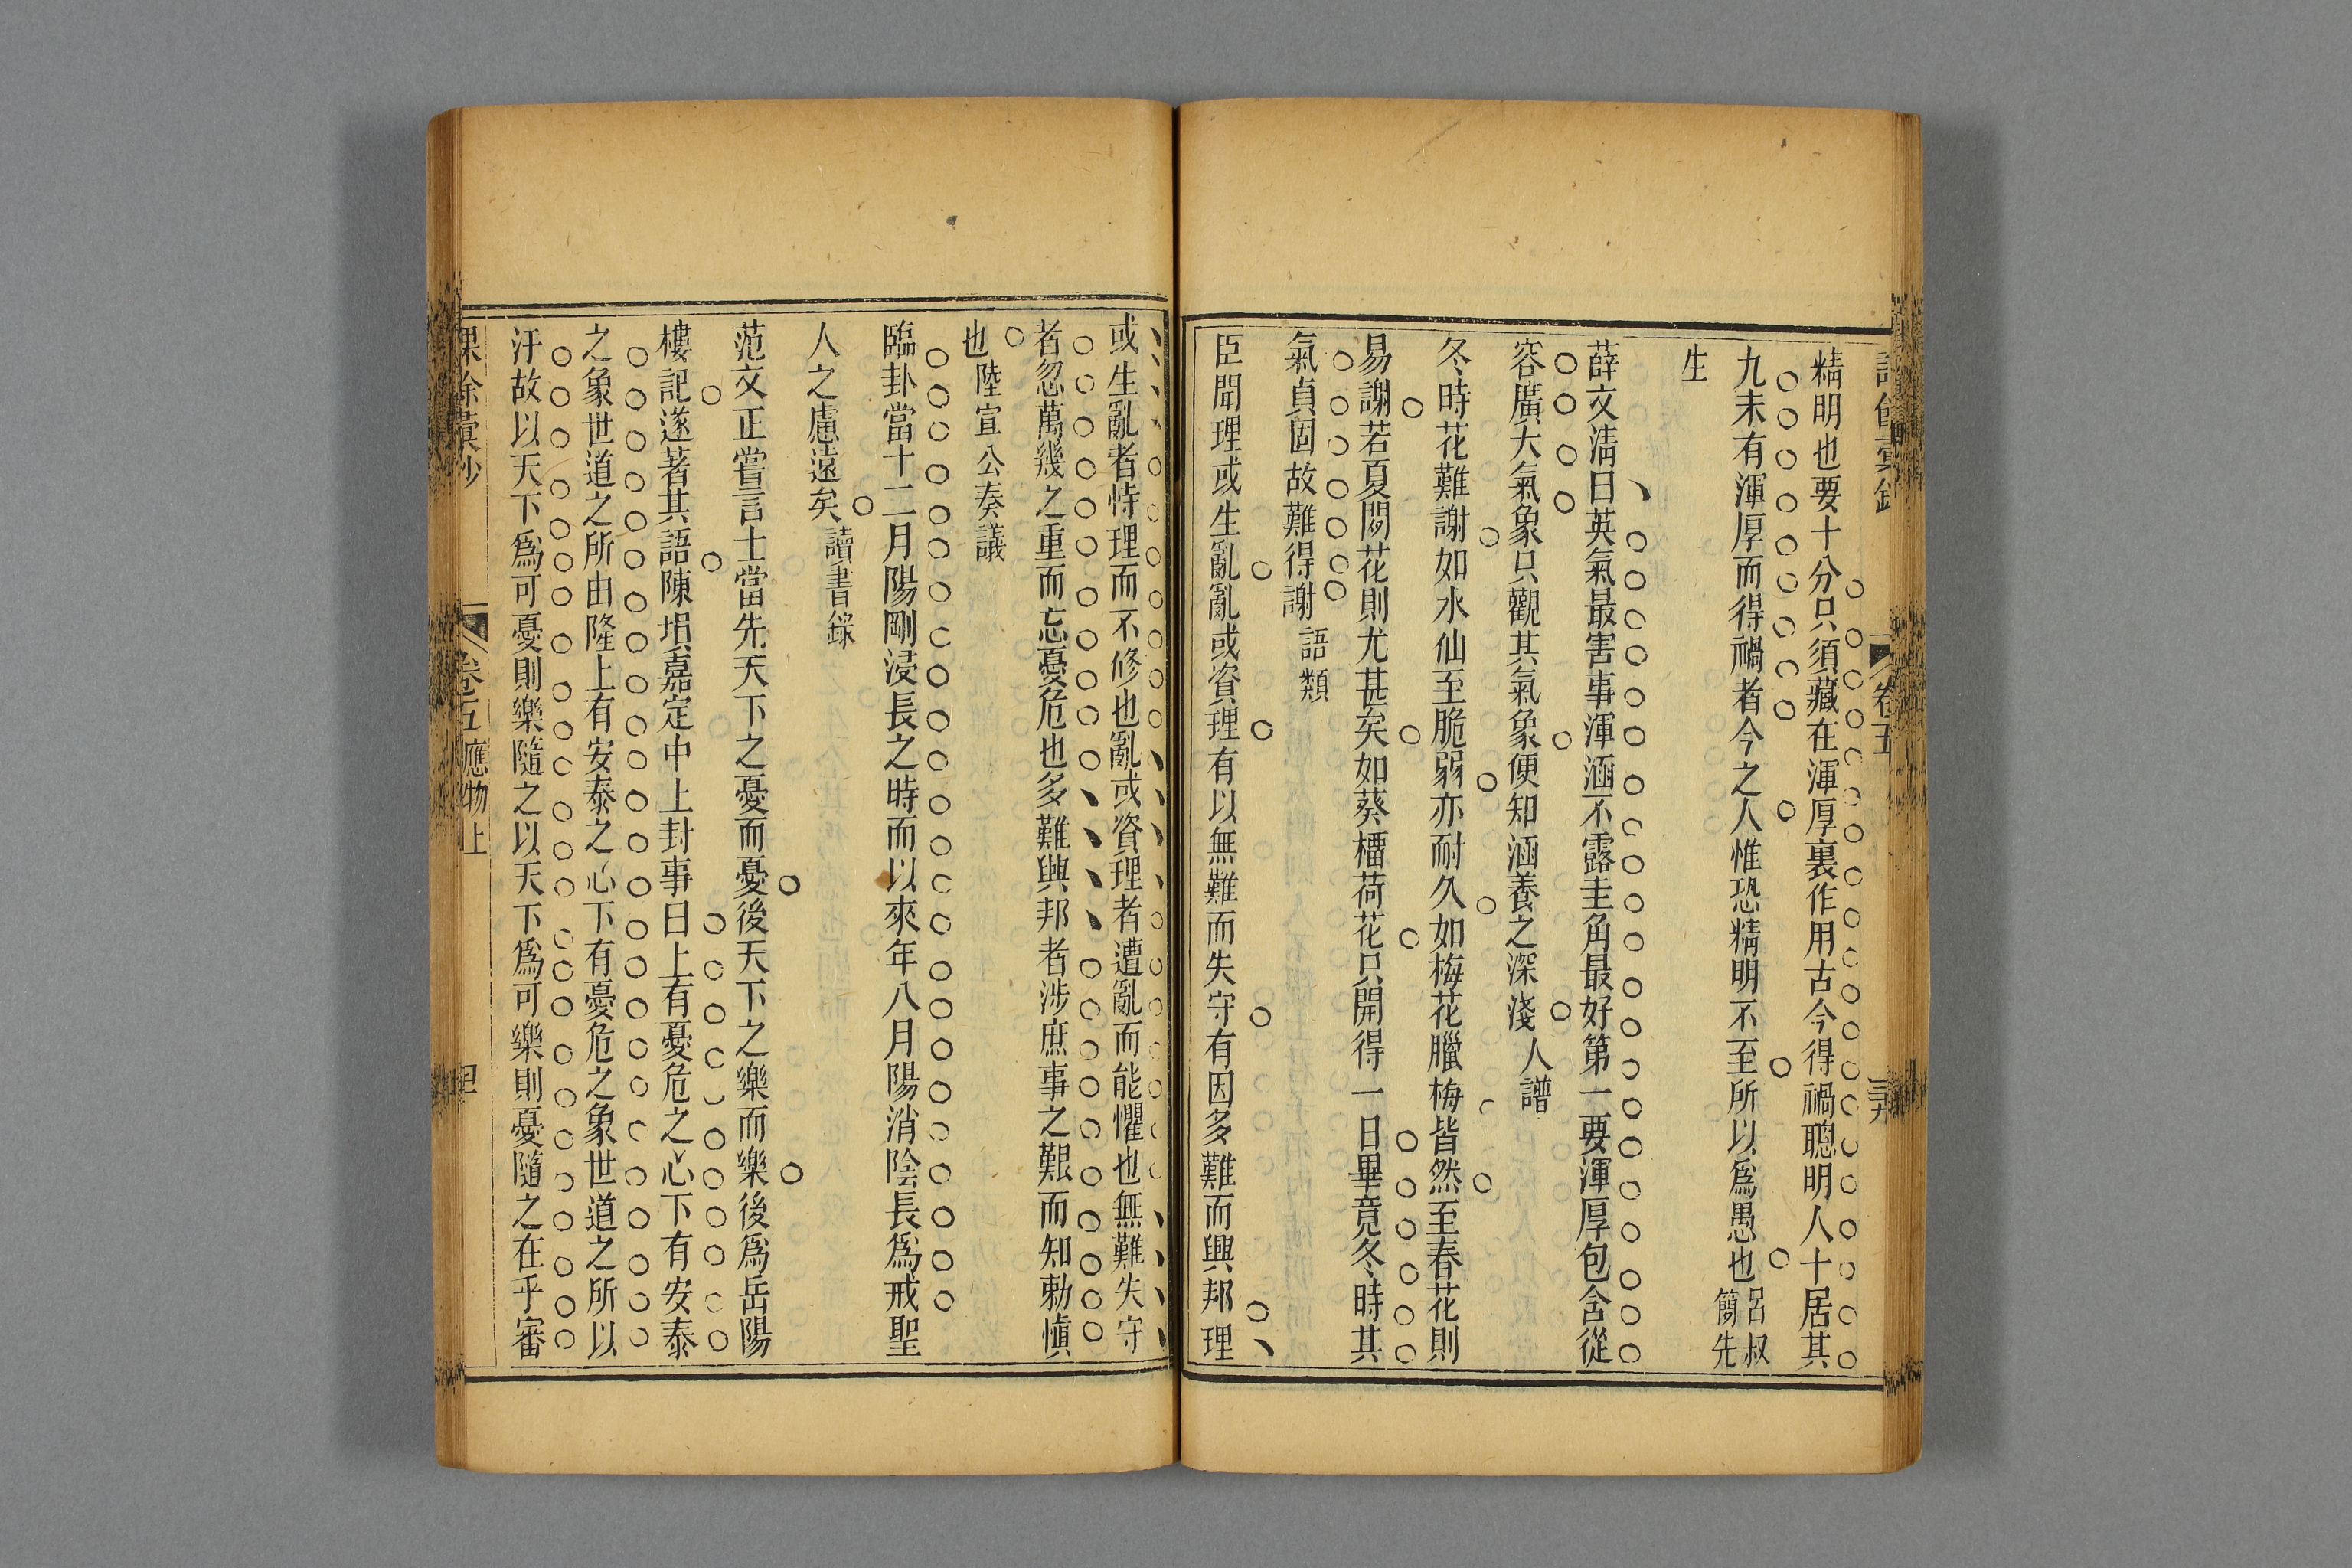 精明也要十分只須藏在渾厚裏作用古今得禍聰明人十居其
九未有渾厚而得禍者今之人惟恐精明不至所以爲愚也呂叔簡先
生
薛文淸曰英氣最害事渾涵不露圭角最好第一要渾厚包含從
容廣大氣象只觀其氣象便知涵養之深淺人譜
冬時花難謝如水仙至脆弱亦耐久如梅花臘梅皆然至春花則
易謝若夏閒花則尤甚矣如葵榴荷花只開得一日畢竟冬時其
氣貞固故難得謝語類
臣聞理或生亂亂或資理有以無難而失守有因多難而興邦理
或生亂者恃理而不修也亂或資理者遭亂而能懼也無難失守
者忽萬幾之重而忘憂危也多難興邦者涉庶事之艱而知勅愼
也陸宣公奏議
臨卦當十二月陽剛浸長之時而以來年八月陽消陰長爲戒聖
人之慮遠矣讀書錄
范文正嘗言士當先天下之憂而憂後天下之樂而樂後爲岳陽
樓記遂著其語陳埙嘉定中上封事曰上有憂危之心下有安泰
之象世道之所由隆上有安泰之心下有憂危之象世道之所以
汙故以天下爲可憂則樂隨之以天下爲可樂則憂隨之在乎審
卷五
卷五 應物上